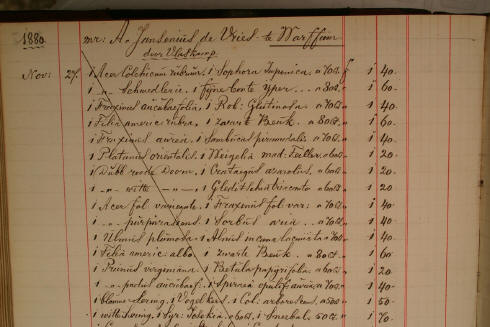 1880. Mr: A. Jansenius de Vries te Warffum
door Vlaskamp.
Nov: 27. 1 Acer Colchicum rubrum. 1 Sophora Japonica a 70ct. f 1 40.
1 -„- Schwedlerie. 1 Fijne Conte Yper a 80ct. „ 1 60.
1 Fraxinus aucubaefolia. 1 Rob: Glutinosa a 70ct. „ 1 40.
1 Tilia americ: rubra. 1 zwarte Beuk. a 80ct. „ 1 60.
1 Fraxinus aurea. 1 Sambucus a 70ct. „ 1 40.
1 Platanus orientalis. 1 Weigelia a 60ct. „ 1 20.
1 Dubb roode Doorn. 1 Crataegus azarolus a 60ct. „ 1 20.
1 -„- witte -„- 1 Gleditschia a 60ct. „ 1 20.
1 Acer fol. variegate. 1 Fraxinus fol. var: a 70ct. „ 1 40.
1 -„- 1 Sorbus aria a 70ct. „ 1 40.
1 Ulmus plumosa. 1 Alnus incana laciniata a 70ct. „ 1 40.
1 Tilia americ: alba. 1 zwarte Beuk. a 80ct. „ 1 60.
1 Prunus virginiana. 1 Betula papyrifolia a 60ct. „ 1 20.
1 -„- 1 Spirea opulif: aurea a 70ct. „ 1 40.
1 1 Vogelkers. 1 Col: arborescens a 50ct. „ 1 50.
1 1 a 60ct. 1 50ct. „ 1 70.